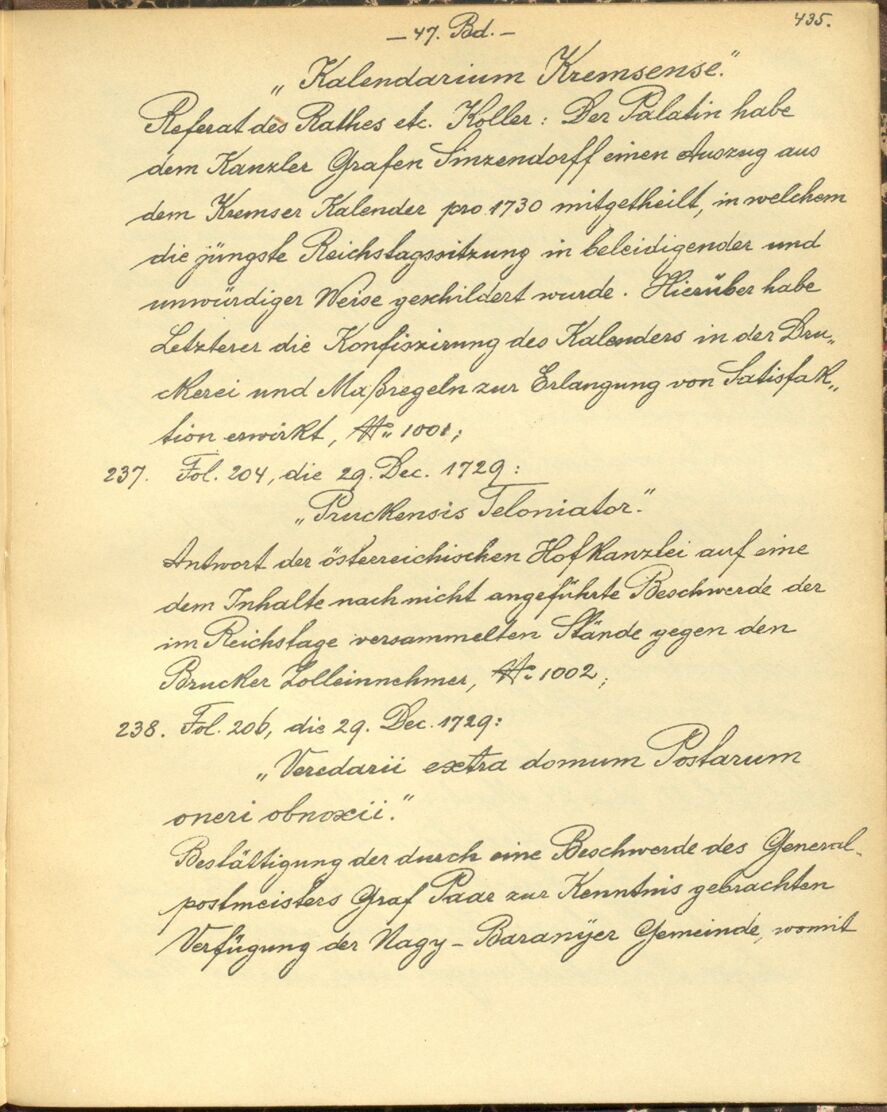 435.
— 47. Bd. —
„Kalendarium Kremsense.“
Referat des Rathes etc. Koller: Der Palatin habe
dem Kanzler Grafen Sinzendorff einen Auszug aus
dem Kremser Kalender pro 1730 mitgetheilt, in welchem
die jüngste Reichstagssitzung in beleidigender und
unwürdiger Weise geschildert wurde. Hierüber habe
Letzterer die Konfiszirung des Kalenders in der Dru„
ckerei und Maßregeln zur Erlangung von Satisfak„
tion erwirkt, No 1001;
237. Fol. 204, die 29. Dec. 1729:
„Pruckensis Teloniator.“
Antwort der österreichischen Hofkanzlei auf eine
dem Inhalte nach nicht angeführte Beschwerde der
im Reichstage versammelten Stände gegen den
Brucker Zolleinnehmer, No 1002;
238. Fol. 206, die 29. Dec. 1729:
„Veredarii extra domum Postarum
oneri obnoxii.“
Bestättigung der durch eine Beschwerde des General-
postmeisters Graf Paar zur Kenntnis gebrachten
Verfügung der Nagy-Baranyer Gemeinde, womit